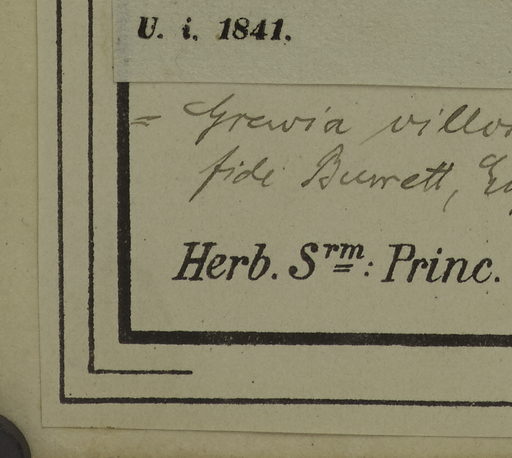 U. i. 1841.
= Grewia villos
fide Burrett, En
Herb. Srm: Princ.